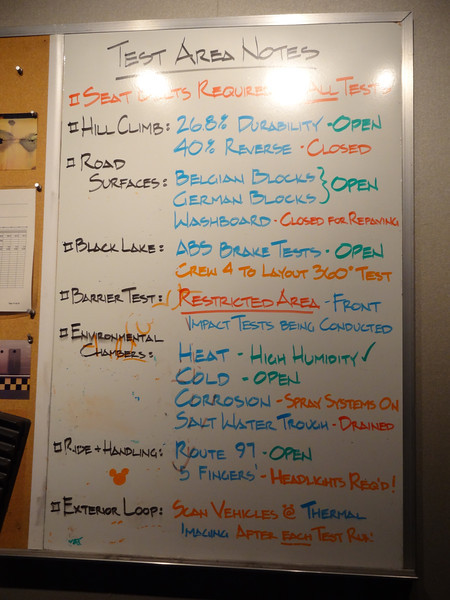 TEST AREA NOTES
SEAT BELTS REQUIRED ALL TESTS
HILL CLIMB: 26.8% DURABILITY - OPEN
40% REVERSE - CLOSED
ROAD SURFACES: BELGIAN BLOCKS } OPEN
GERMAN BLOCKS
WASHBOARD - CLOSED FOR REPAVING
BLACK LAKE: ABS BRAKE TESTS - OPEN
CREW 4 TO LAYOUT 360° TEST
BARRIER TEST: RESTRICTED AREA - FRONT
IMPACT TESTS BEING CONDUCTED
ENVIRONMENTAL
CHAMBERS: HEAT - HIGH HUMIDITY ✓
COLD - OPEN
CORROSION - SPRAY SYSTEMS ON
SALT WATER TROUGH - DRAINED
RIDE + HANDLING: ROUTE 97 - OPEN
'5 FINGERS' - HEADLIGHTS REQ'D!
EXTERIOR LOOP: SCAN VEHICLES @ THERMAL
IMAGING AFTER EACH TEST RUN